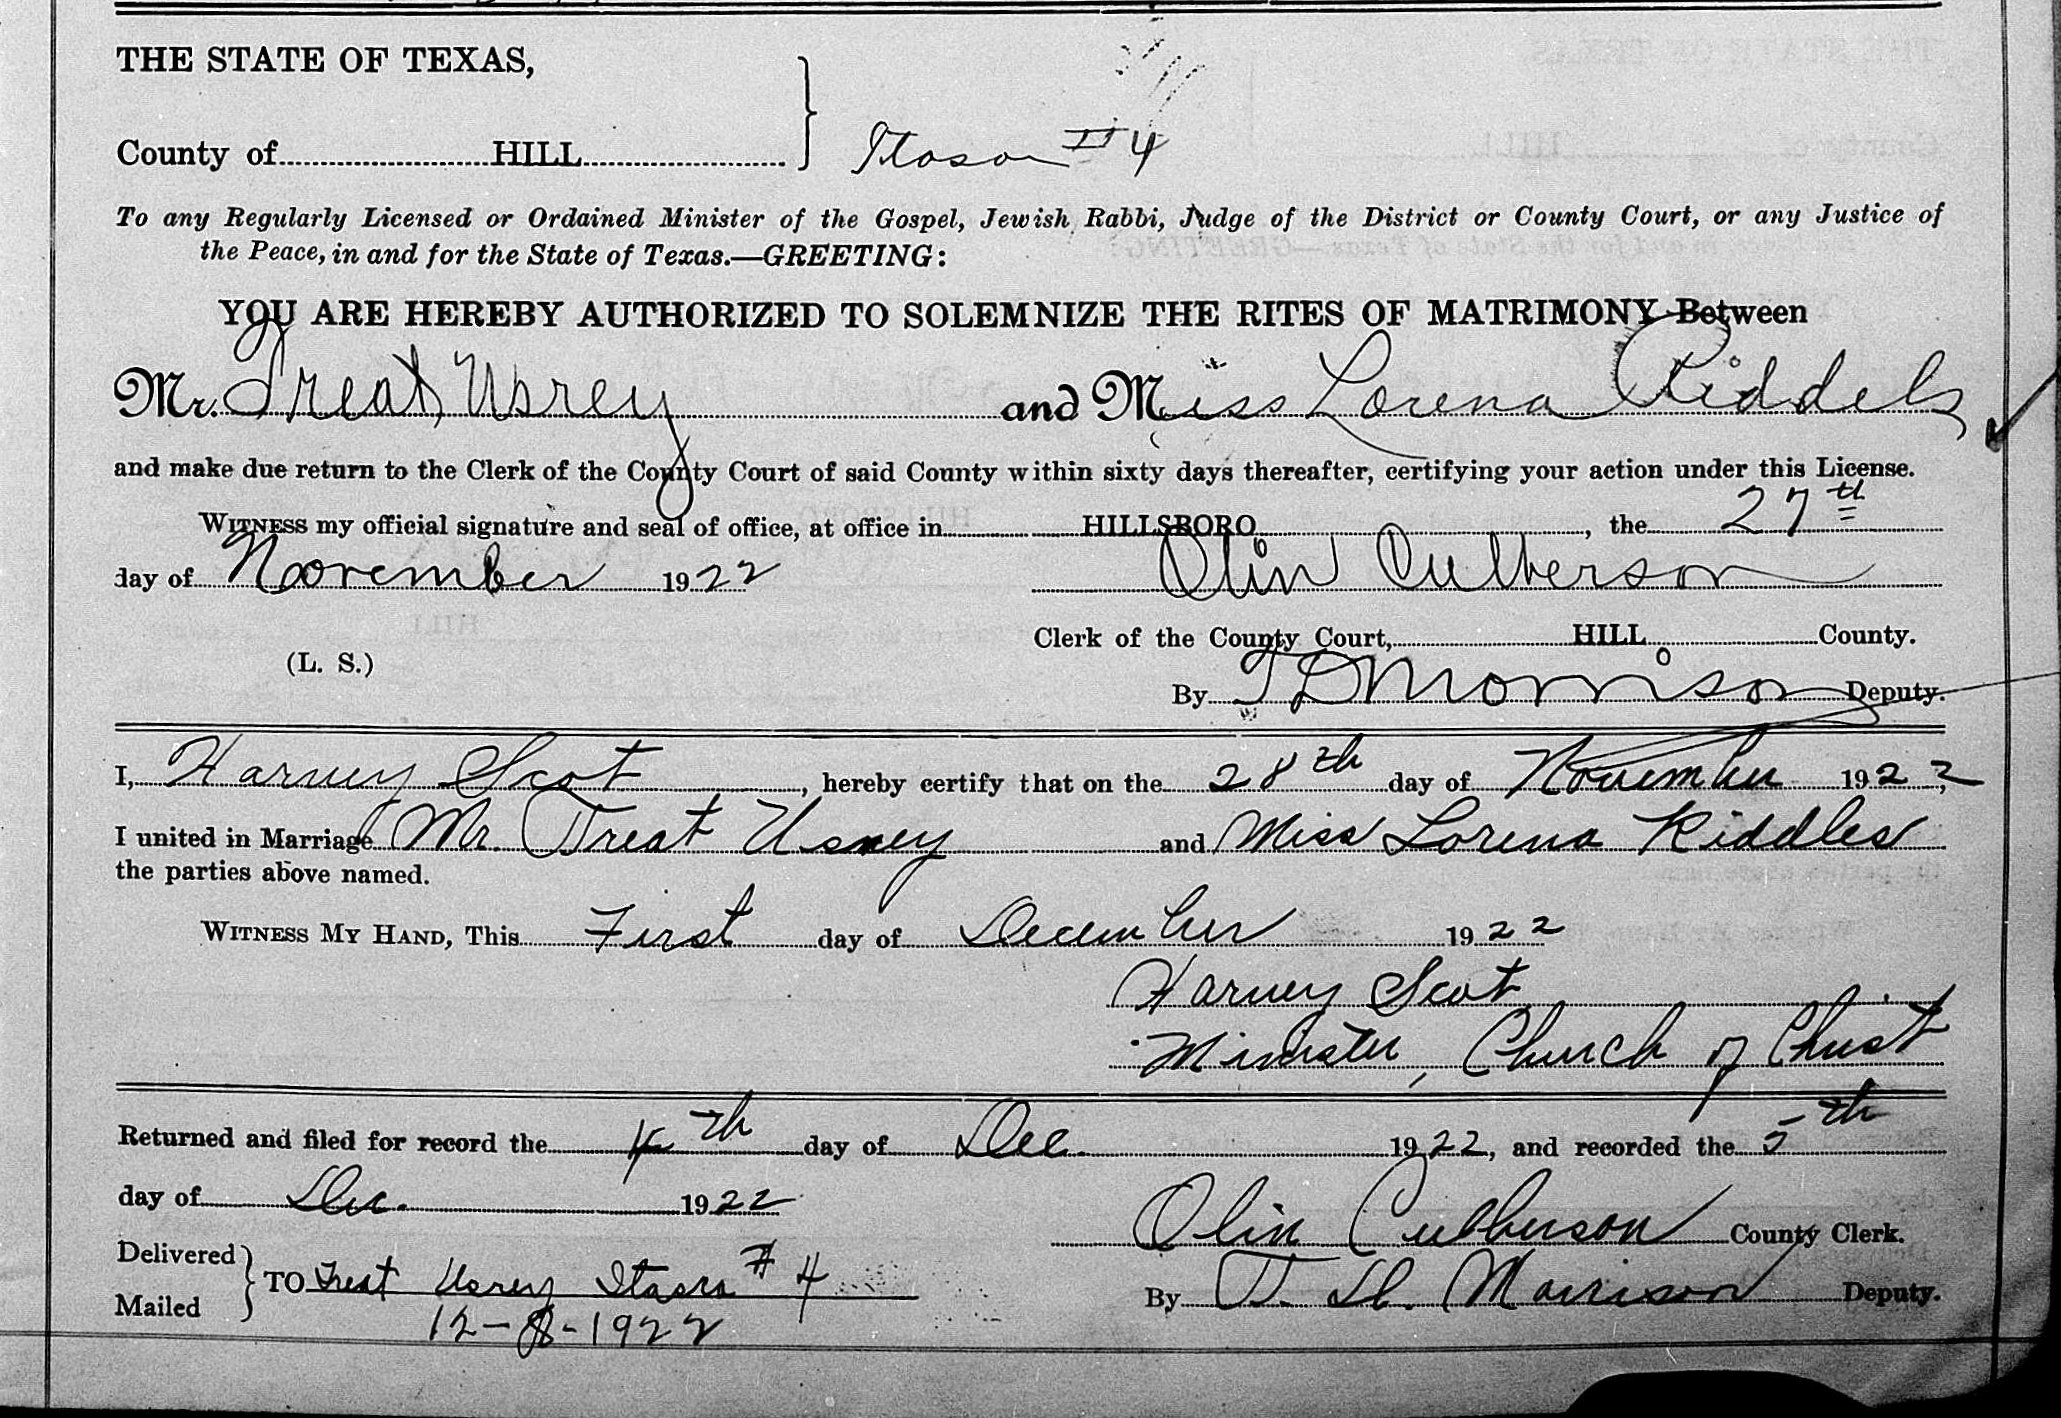 THE STATE OF TEXAS,
County of HILL } Itasca #4
To any Regularly Licensed or Ordained Minister of the Gospel, Jewish Rabbi, Judge of the District or County Court, or any Justice of
the Peace, in and for the State of Texas.—GREETING:
YOU ARE HEREBY AUTHORIZED TO SOLEMNIZE THE RITES OF MATRIMONY Between
Mr. Treat Usrey and Miss Lorena Riddels
and make due return to the Clerk of the County Court of said County within sixty days thereafter, certifying your action under this License.
WITNESS my official signature and seal of office, at office in HILLSBORO, the 27th
day of November 1922 Olin Culberson
Clerk of the County Court, HILL County.
(L. S.)
By T D Morrison Deputy.
I, Harvey Scot, hereby certify that on the 28th day of November 1922,
I united in Marriage Mr. Treat Usrey and Miss Lorena Riddles
the parties above named.
WITNESS MY HAND, This First day of December 1922
Harvey Scot
Minister, Church of Christ
Returned and filed for record the 4th day of Dec. 1922, and recorded the 5th
day of Dec. 1922 Olin Culberson County Clerk.
Delivered
Mailed } TO Treat Usrey Itasca #4
By T. D. Morrison Deputy.
12-8-1922